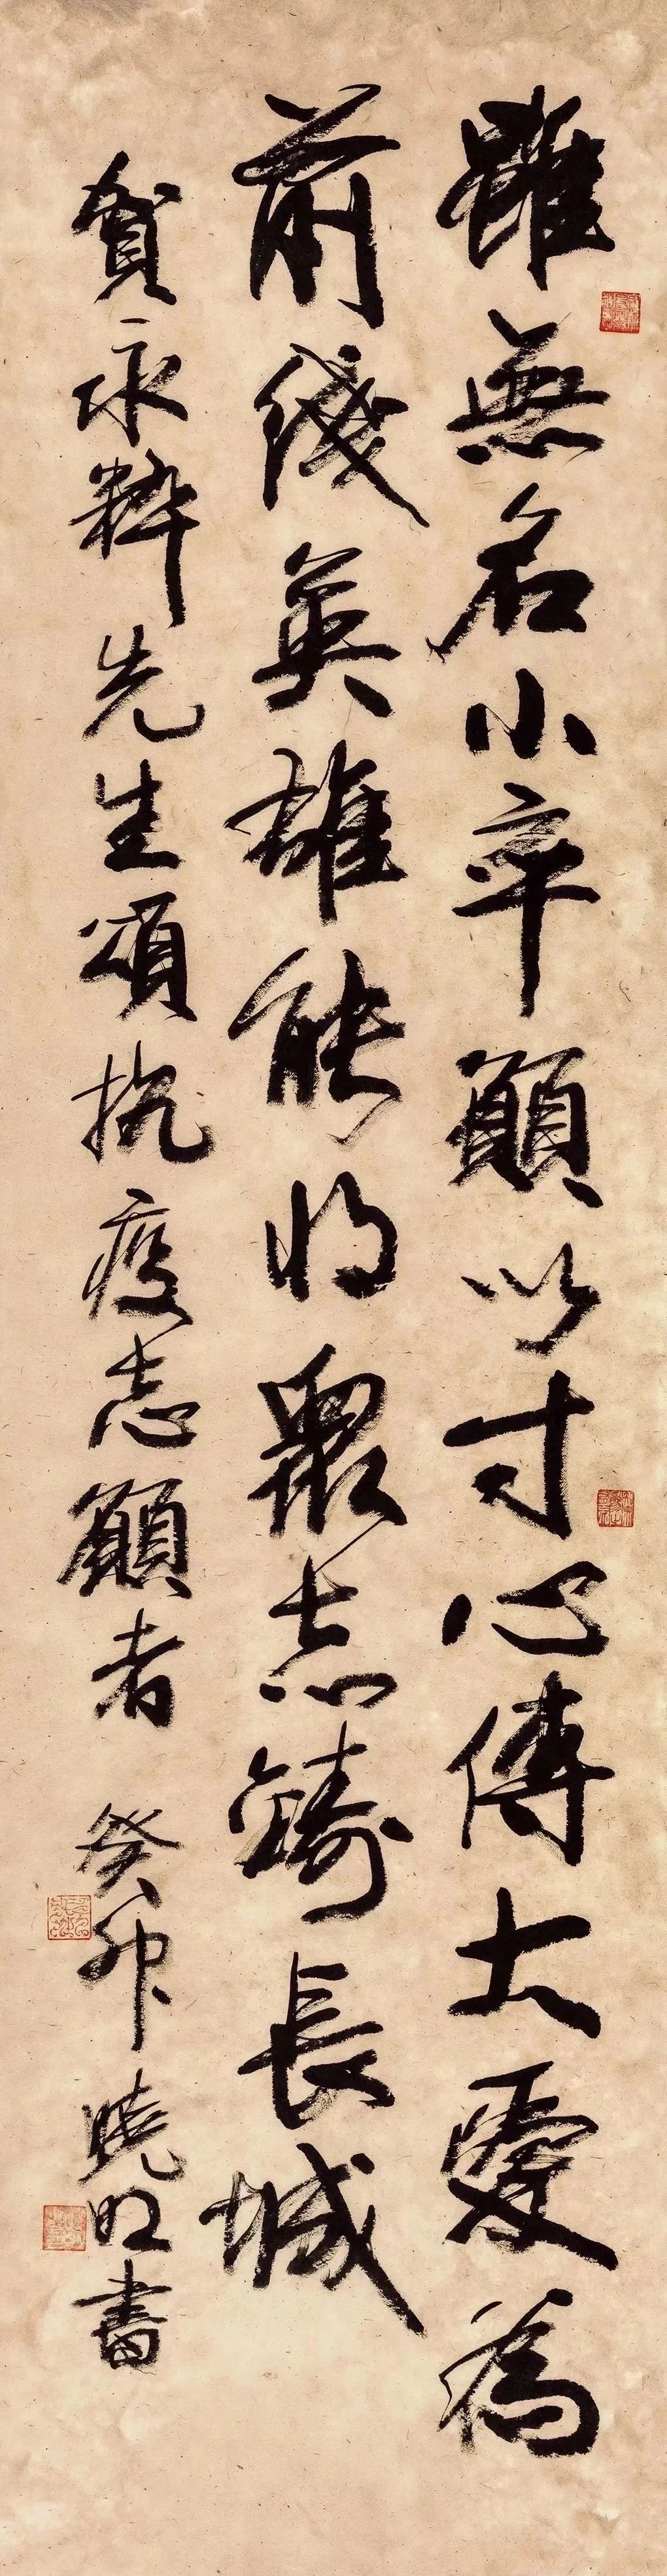 雖無名小卒願以寸心傳大愛為
前线英雄能將眾志鑄長城
賀永粹先生頌抗疫志願者 癸卯曉明書